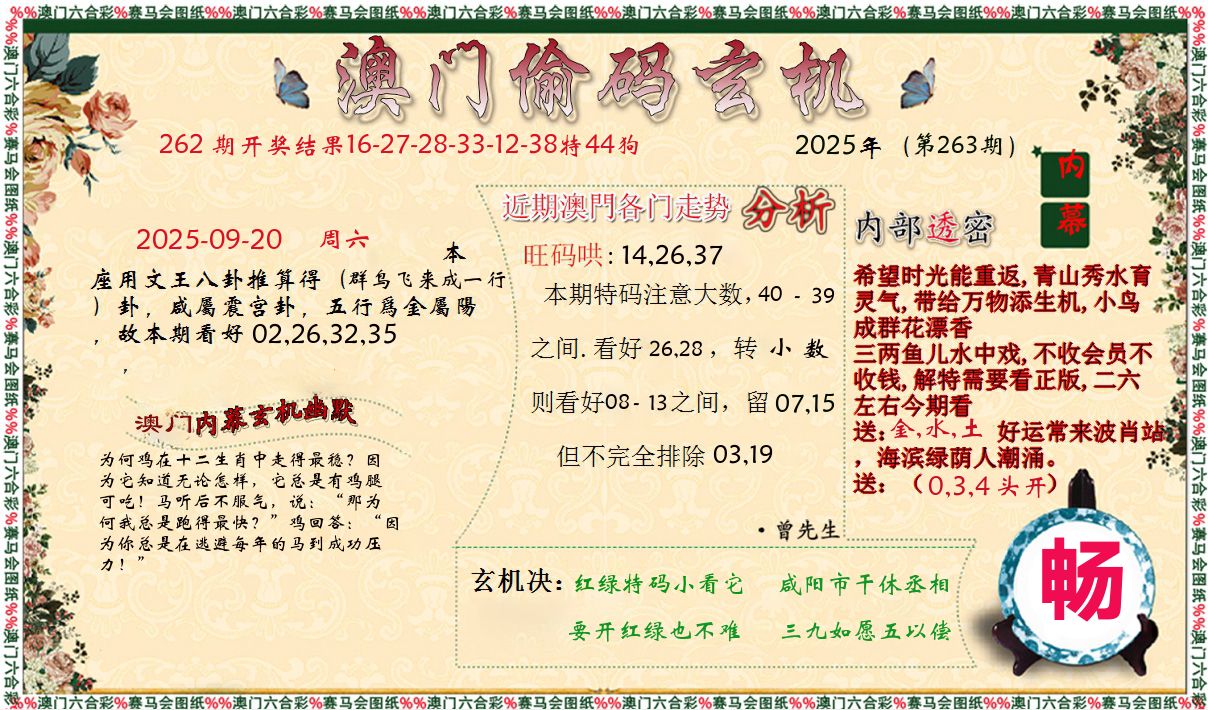 %%澳门六合彩%赛马会图纸%%澳门六合彩%赛马会图纸%%澳门六合彩%赛马会图纸%%澳门六合彩%赛马会图纸%%澳门六合彩%赛马会图纸%%澳门六合彩%赛马会图纸%%
澳门偷码玄机
262 期开奖结果16-27-28-33-12-38特44狗
2025年（第263期）
内幕
2025-09-20 周六
本
座用文王八卦推算得（群鸟飞来成一行
）卦，咸屬震宫卦，五行爲金屬陽
，故本期看好 02,26,32,35
，
澳门内幕玄机幽默
为何鸡在十二生肖中走得最稳？因
为它知道无论怎样，它总是有鸡腿
可吃！马听后不服气，说：“那为
何我总是跑得最快？”鸡回答：“因
为你总是在逃避每年的马到成功压
力！”
近期澳門各门走势 分析
旺码哄: 14,26,37
本期特码注意大数, 40 - 39
之间. 看好 26,28 ，转 小 数
则看好08- 13之间，留 07,15
但不完全排除 03,19
·曾先生
内部透密
希望时光能重返, 青山秀水育
灵气, 带给万物添生机, 小鸟
成群花漂香
三两鱼儿水中戏, 不收会员不
收钱, 解特需要看正版, 二六
左右今期看
送: 金,水,土 好运常来波肖站
，海滨绿荫人潮涌。
送: （0,3,4 头开）
玄机决: 红绿特码小看它 咸阳市干休丞相
要开红绿也不难 三九如愿五以偿
畅
%%澳门六合彩%赛马会图纸%%澳门六合彩%赛马会图纸%%澳门六合彩%赛马会图纸%%澳门六合彩%赛马会图纸%%澳门六合彩%赛马会图纸%%澳门六合彩%赛马会图纸%%